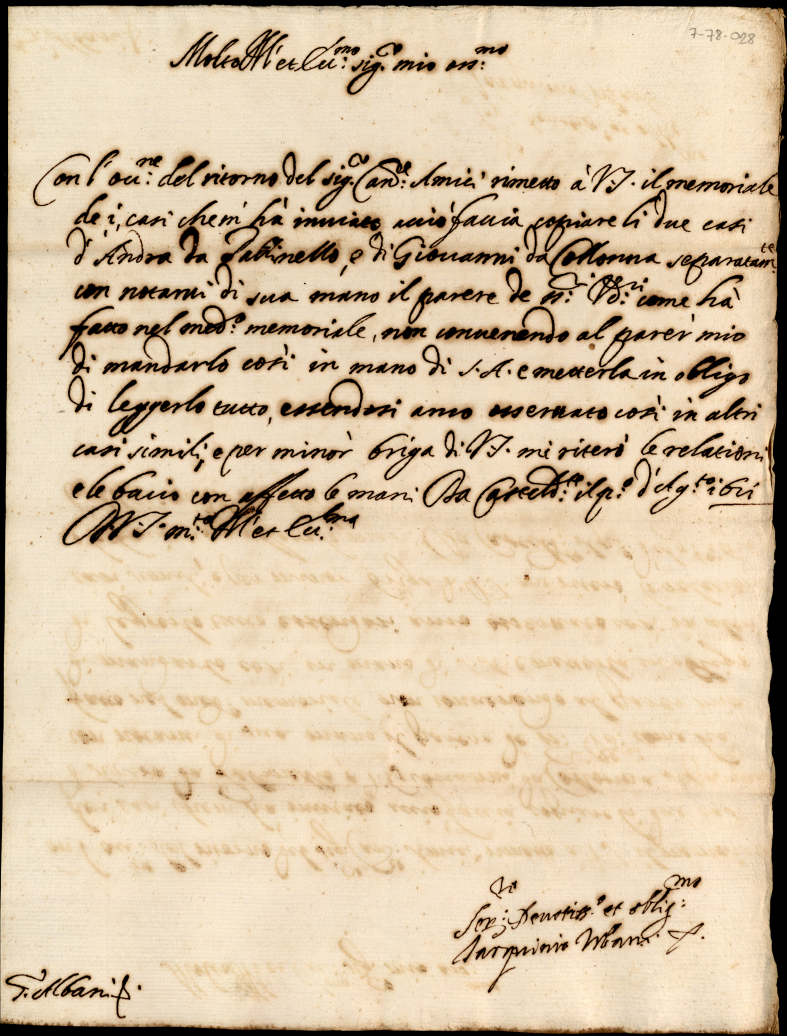 7-78-028
Molto Ill et Ecc:mo sig.r mio oss:mo
Con l'occ:ne del ritorno del sig.r Can:co Amici rimetto à V.S. il memoriale
de i casi che m' hà inviato acciò faccia copiare li due casi
d' Andrea da e di Giovanni da Collonna separatam:te
con notarvi di sua mano il parere de ss:ri come hà
fatto nel med:o memoriale, non convenendo al parer mio
di mandarlo così in mano di S.A. e metterla in obligo
di leggerlo tutto, essendosi anco osservato così in altri
casi simili, e per minor briga di V.S. mi riterò le relationi
e le bacio con affetto le mani Da il p.o d'Ag:to
D V.S. m:to Ill et Ecc:ma
Ser:re Devotiss:o et oblig:mo
Tarquinio Urbani
S.r Albani